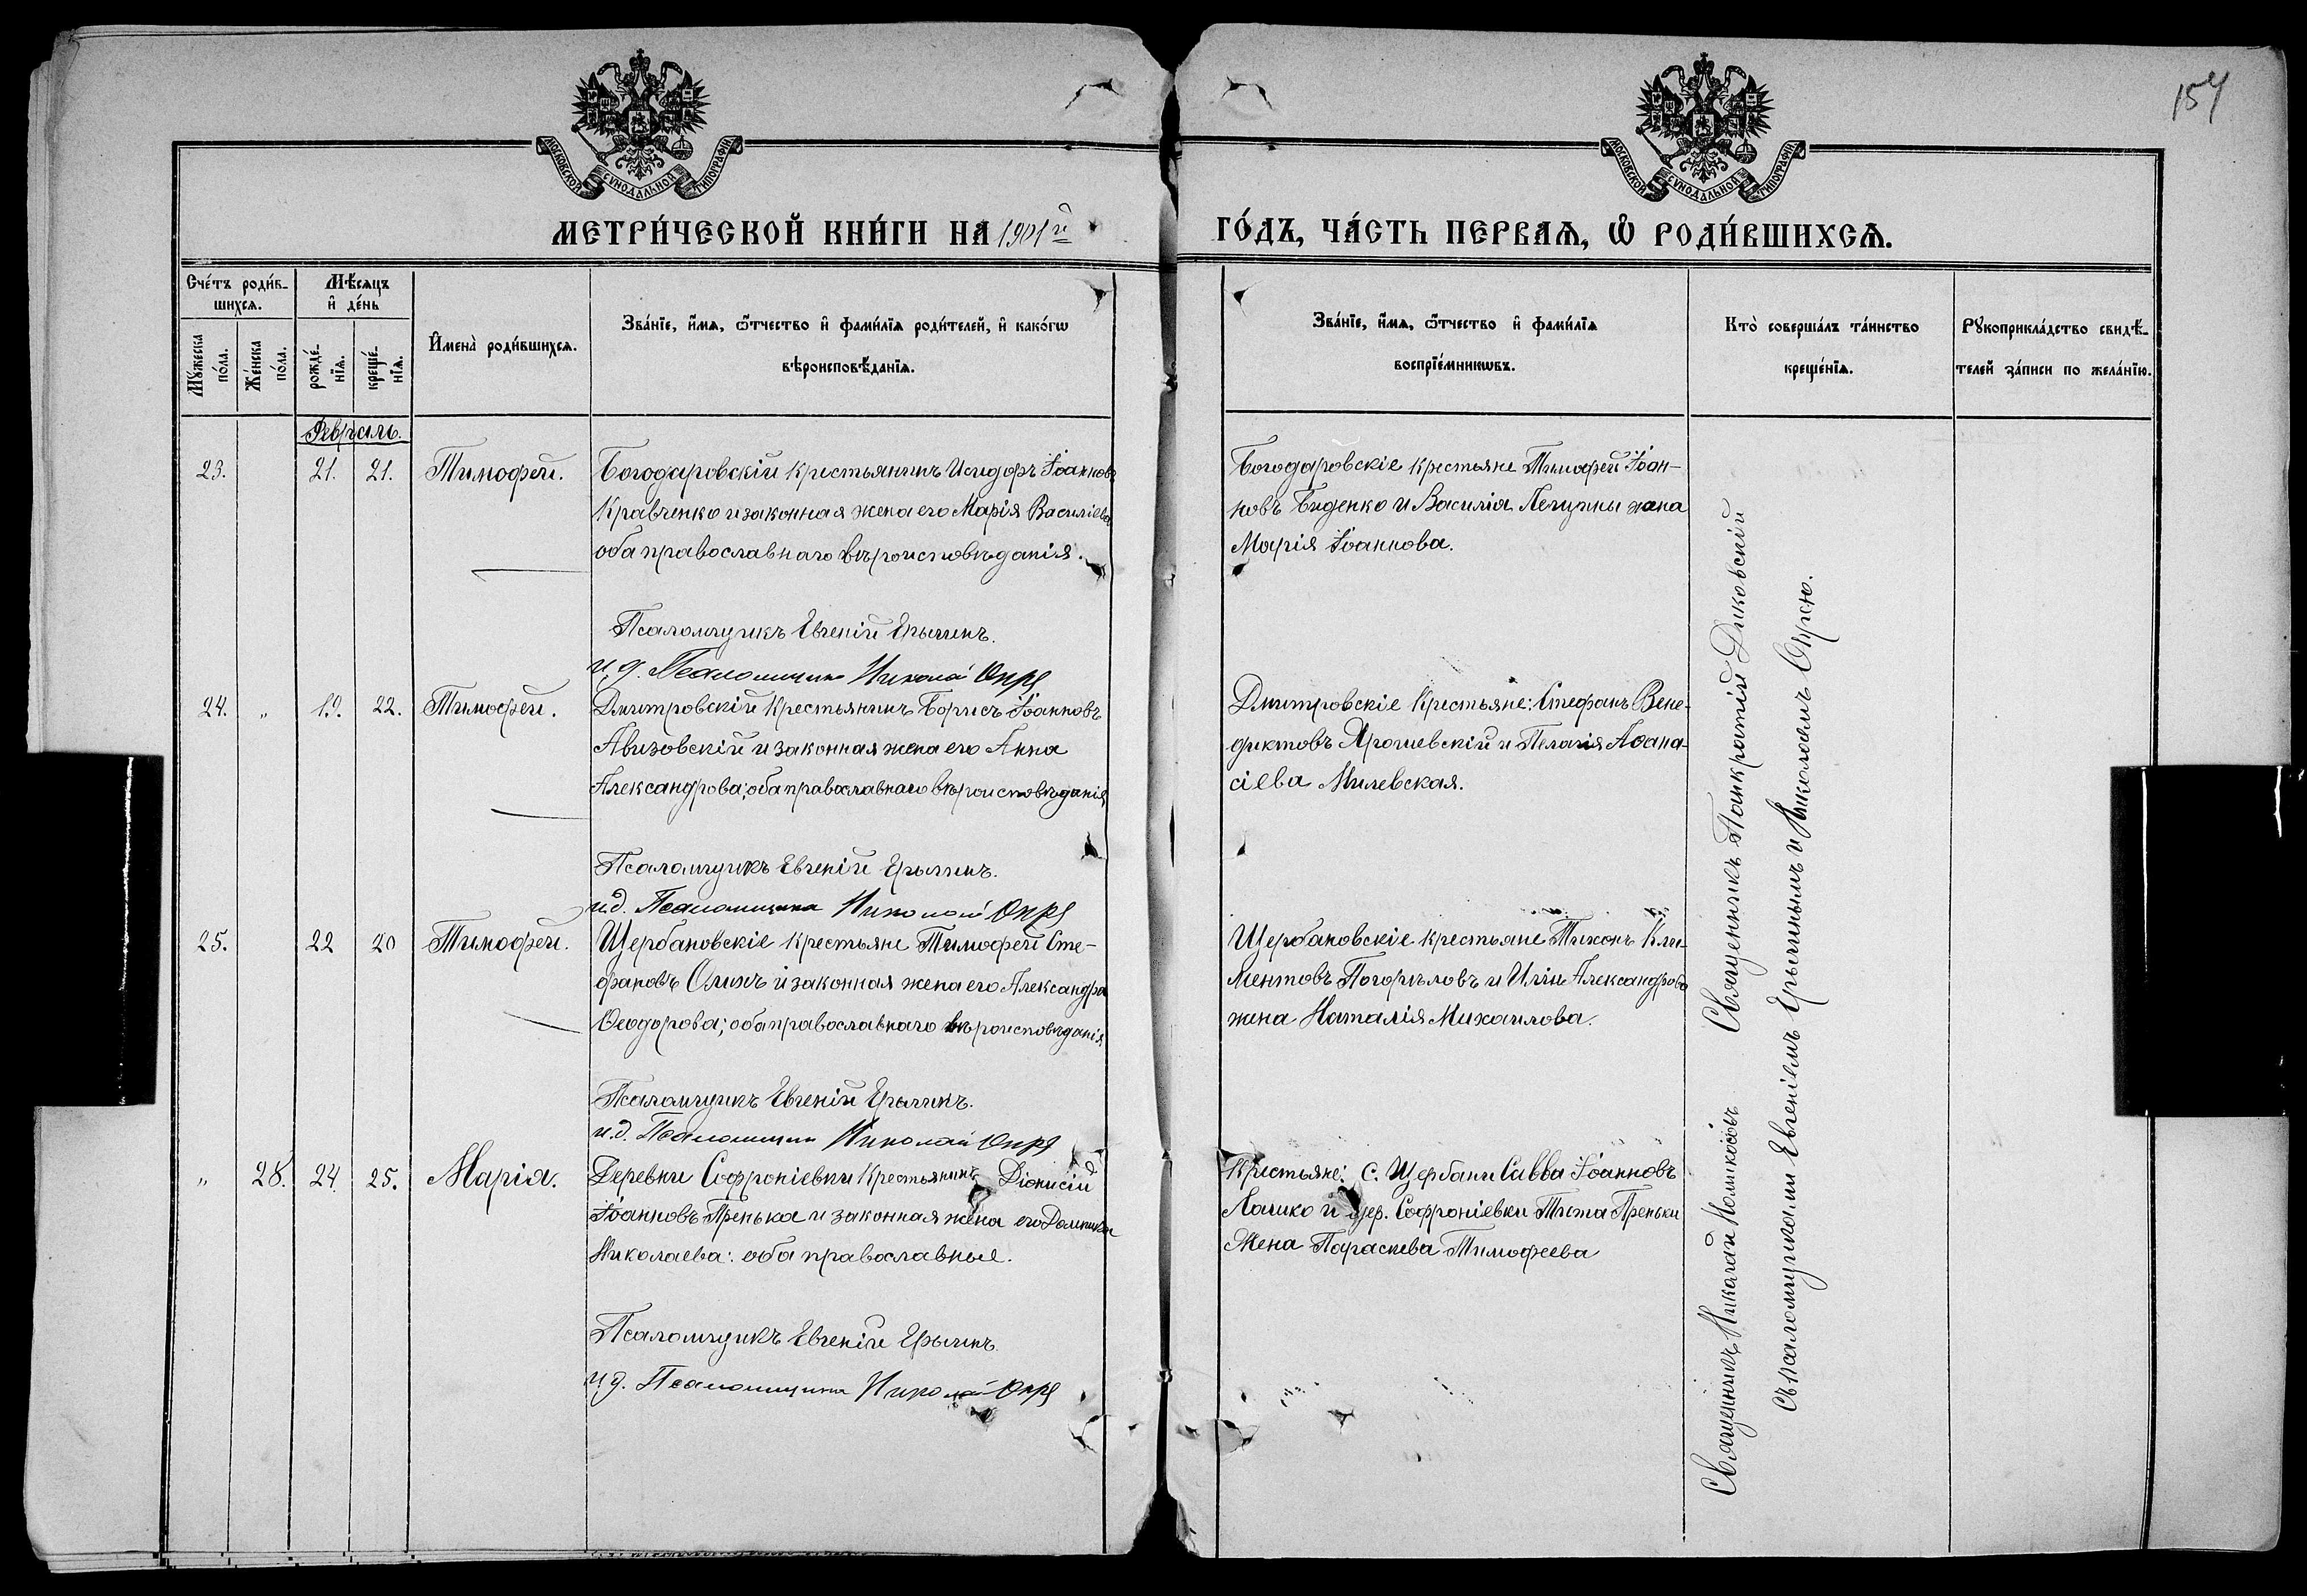 154
МОСКОВСКОЙ СѴНОДАЛЬНОЙ ТИПОГРАФІИ
МОСКОВСКОЙ СѴНОДАЛЬНОЙ ТИПОГРАФІИ
МЕТРИ́ЧЕСКОЙ КНИ́ГИ НА 1901й ГО́ДЪ, ЧА́СТЬ ПЕРВАѦ, Ѽ РОДИ́ВШИХСѦ.
Сче́тъ роди́в-
шихсѧ.
Мѣ́сѧцъ
и҆ де́нь
Мꙋ́жеска по́ла.
Же́нска по́ла.
рожде́-
нїѧ.
креще́-
нїѧ.
И҆мена̀ роди́вшихсѧ.
Зва́нїе, и҆́мѧ, ѻ҆́тчество и҆ фами́лїѧ роди́телей, и҆ како́гѡ
вѣроисповѣ́данїѧ.
Зва́нїе, и҆́мѧ, ѻ҆́тчество и҆ фами́лїѧ
воспрїе́мникѡвъ.
Кто̀ соверша́лъ та́инство
креще́нїѧ.
Рꙋкоприкла́дство свидѣ́-
телей за́писи по жела́нїю.
Февраль.
23. 21. 21. Тимофей. Богодаровскій крестьянинъ Исидоръ Іоанновъ
Кравченко и законная жена его Марія Василіева
оба православнаго вѣроисповѣданія.
Псаломщикъ Евгеній Ерыгинъ.
и. д. Псаломщика Николай Опря
Богодаровскіе крестьяне Тимофей Іоан-
новъ Биденко и Василія жена
Марія Іоаннова.
24. „ 19. 22. Тимофей. Дмитровскій крестьянинъ Борисъ Іоанновъ
Авизовскій и законная жена его Анна
Александрова; оба православнаго вѣроисповѣданія
Псаломщикъ Евгеній Ерыгинъ.
и. д. Псаломщика Николай Опря
Дмитровскіе крестьяне: Стефанъ Вене-
диктовъ Ярошевскій и Пелагія Аѳана-
сіева Милевская.
25. 22 20 Тимофей. Щербановскіе крестьяне Тимофей Сте-
фановъ и законная жена его Александра
Ѳеодорова; оба православнаго вѣроисповѣданія
Псаломщикъ Евгеній Ерыгинъ.
и. д. Псаломщика Николай Опря
Щербановскіе крестьяне Тихонъ Кли-
ментовъ Погорѣловъ и Иліи Александрова
жена Наталія Михаилова.
„ 28. 24. 25. Марія. Деревни Софроніевки крестьянинъ Діонисій
Іоанновъ Пренька и законная жена его Домника
Николаева: оба православные.
Псаломщикъ Евгеній Ерыгинъ.
и. д. Псаломщика Николай Опря
Крестьяне: с. Щербани Савва Іоанновъ
Лашко и дер. Софроніевки Тита Преньки
жена Параскева Тимофеева
Священникъ Николай Священникъ Панкратій Диковскій
съ псаломщиками Евгеніемъ Ерыгинымъ и Николаемъ Опрею.